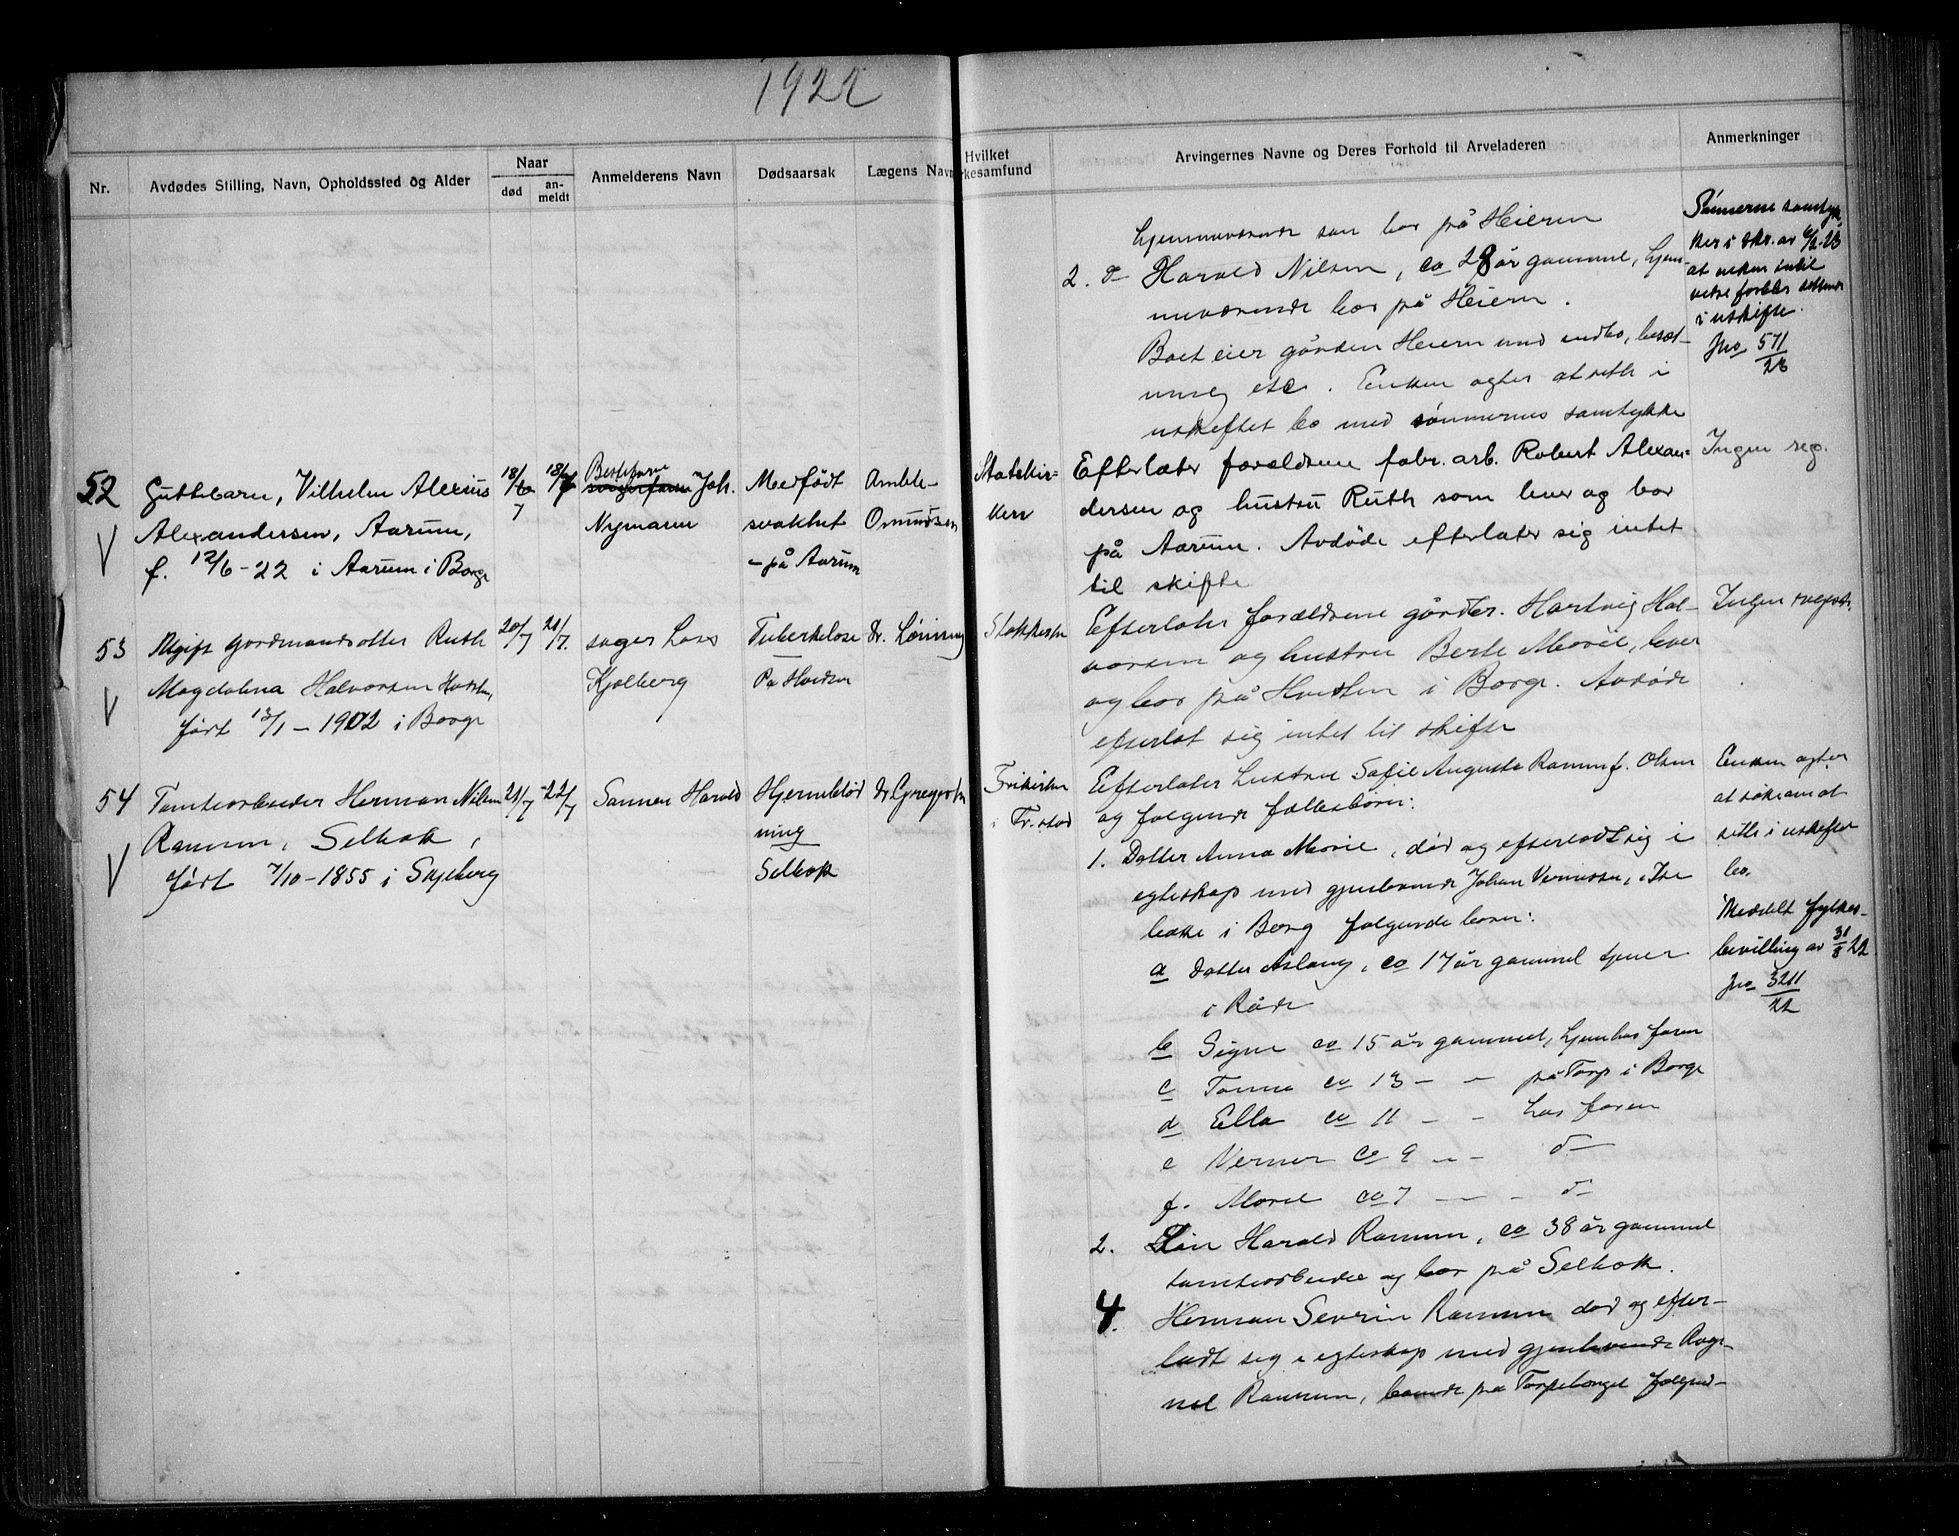 1922
Nr.
Avdødes Stilling, Navn, Opholdssted og Alder
Naar
død
an-
meldt
Anmelderens Navn
Dødsaarsak
Lægens Navn
Hvilket
kesamfund
Arvingernes Navne og Deres Forhold til Arveladeren
Anmerkninger
hjemmeværende som bor på Heieren
2. d— Harald Nilsen, ca 28 år gammel, hjem-
meværende bor på Heieren.
Boet eier gården Heieren med indbo, besæt-
ning etc. Enken agter at sitte i
uskiftet bo med sönnernes samtykke
Sönnerne samtyk-
ker i skr. av 6/2-23
at enken
i uskifte.
Jno 571
23
52
Guttebarn, Vilhelm Alexius
Alexandersen, Aarum,
f. 12/6-22 i Aarum i Borge
18/6
7
18/7
Bestefaren
Joh.
Nymann
Medfödt
svakhet
- på Aarum
Amble-
Omundsen
Statskir-
ken
Efterlater forældrene fabr. arb. Robert Alexan-
dersen og hustru Ruth som lever og bor
på Aarum. Avdöde efterlater sig intet
til skifte
Ingen reg.
53
Ugift gårdmandsdatter Ruth
Magdalena Halvorsen Hvidsten,
født 13/1-1902 i Borge
20/7
21/7.
svoger Lars
Kjølberg
Tuberkulose
På Hvidsten
Dr. Lörining
Statskirken
Efterlater forældrene gårdbr. Hartvig Hal-
vorsen og hustru Berte Marie, lever
og bor på Hvidsten i Borge. Avdöde
efterlot sig intet til skifte
Ingen registr.
54
Tomtearbeider Herman Nilsen
Ramum, Selbak,
født 7/10-1855 i Skjeberg
21/7
22/7
Sönnen Harald
Hjerneblöd
ning
Selbak
Dr. Gregersen
Frikirken
i Fr.stad
Efterlater hustru Sofie Augusta Ramum f. Olsen
og følgende fællesbörn:
1. Datter Anna Marie, död og efterladt sig i
egteskap med gjenlevende Johan Vernersen, i Tre
bakke i Borg følgende barn:
a Datter Aslaug, ca 17 år gammel tjener
i Råde
b Signe ca 15 år gammel, hjem hos faren
c Tonna ca 13 — — på Torp i Borge
d Ella ca 11 — — hos faren
e Verner ca 9 — — d—
f. Marie ca 7 — — d—
2. Sön Harald Ramum, ca 38 år gammel
tomtearbeider og bor på Selbak.
4. Herman Severin Ramum död og efter-
ladt sig i egteskap med gjenlevende Rag-
nel Ramum, boende på Torpeberget følgend-
Enken agter
at söke om at
sitte i uskiftet
bo.
Meddelt fylkes-
bevilling av 31/8 22.
Jno 3211
22